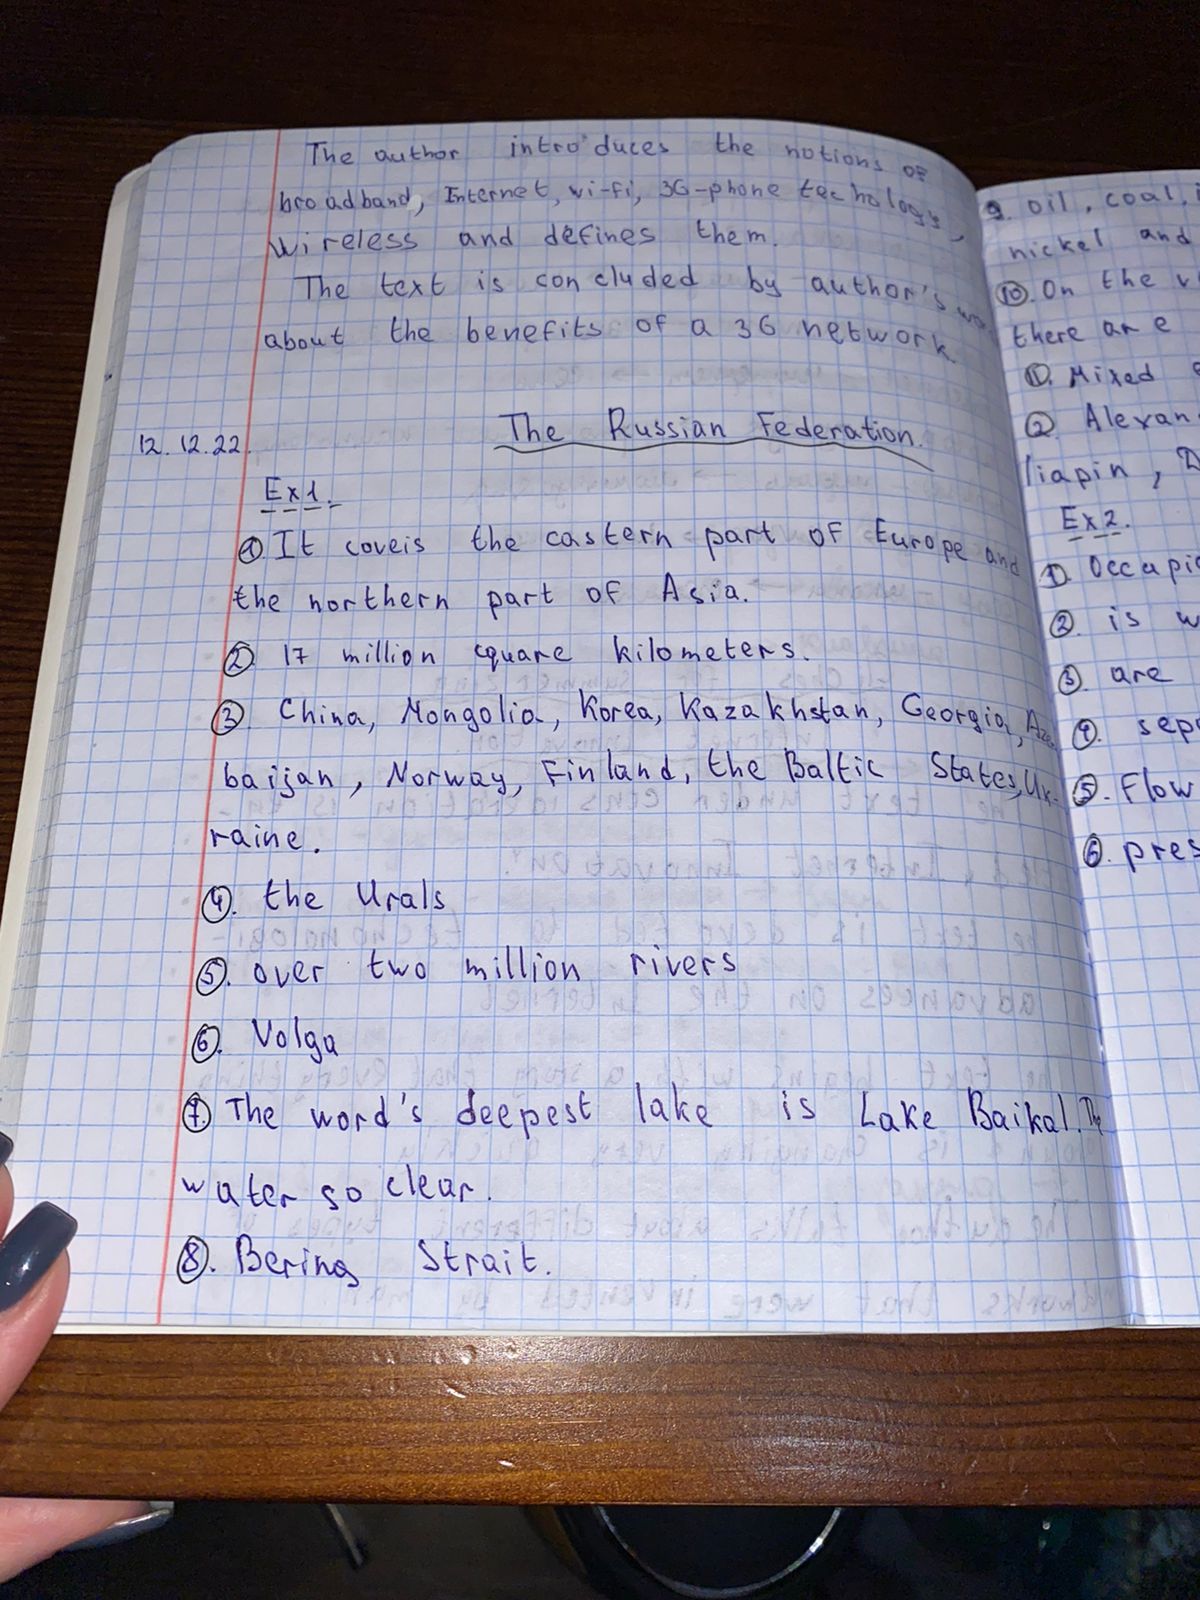 The author introduces the notions of
broadband, Internet, wi-fi, 3G-phone techology,
wireless and defines them.
The text is concluded by author's
about the benefits of a 3G network.
12.12.22.
The Russian Federation.
Ex1.
1 It coveis the eastern part of Europe and
the northern part of Asia.
2 17 million square kilometers.
3 China, Mongolia, Korea, Kazakhstan, Georgia, Aze
baijan, Norway, Finland, the Baltic States, Uk-
raine.
4. the Urals
5. over two million rivers
6. Volga
7. The word's deepest lake is Lake Baikal. The
water so clear.
8. Bering Strait.
9. oil, coal,
nickel and
10. On the
there are
1. Mixed
2 Alexan
liapin,
Ex2.
1. Occupi
2. is w
3. are
4. sep
5. Flow
6. pres